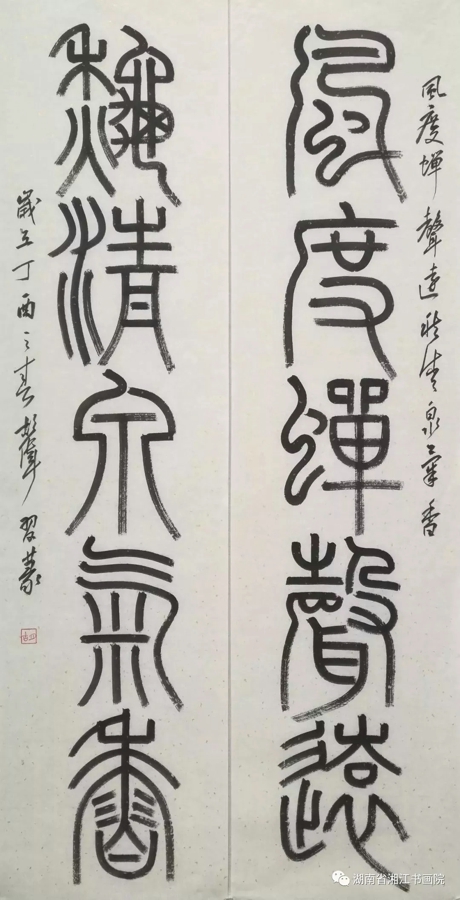 風度蟬聲遠秋清泉氣香
風度蟬聲遠
秋清泉氣香
歲在丁酉之春 習篆
湖南省湘江书画院